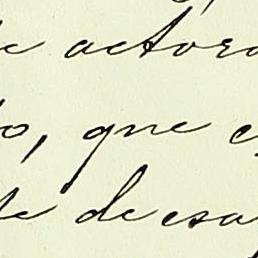 e actora
o, que e
te de esa